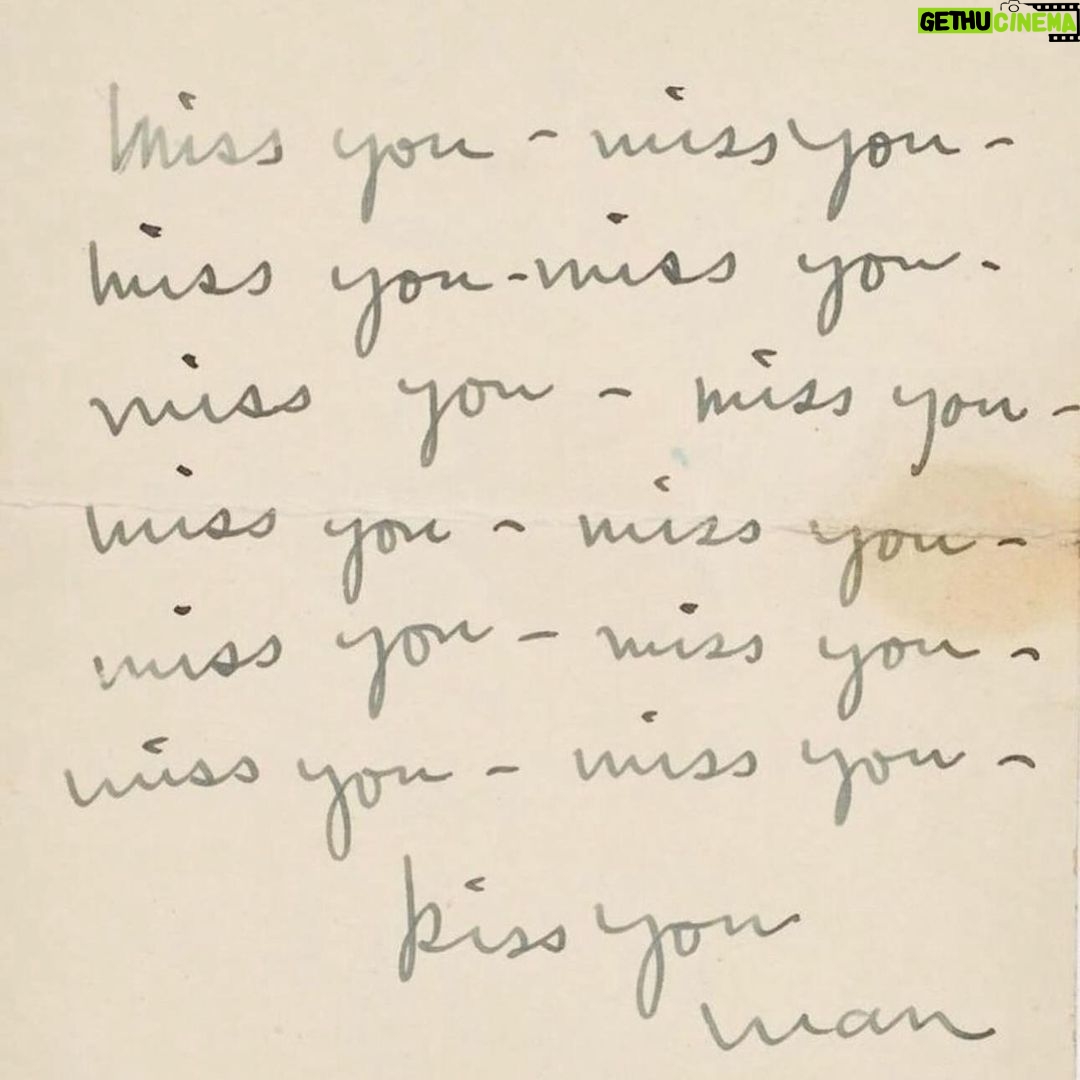 GETHUCINEMA
Miss you - miss you -
miss you - miss you -
miss you - miss you -
miss you - miss you -
miss you - miss you -
miss you - miss you -
kiss you
man